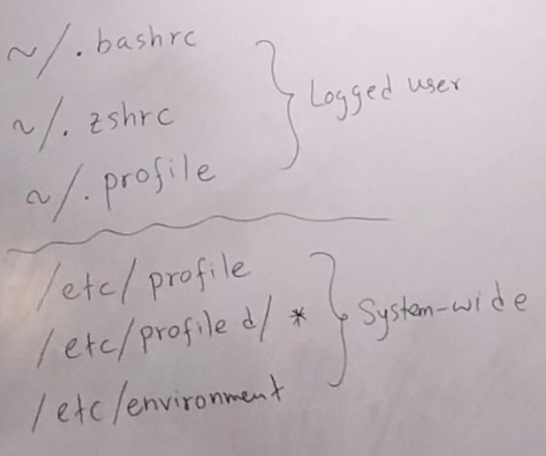 ~/.bashrc
~/.zshrc
~/.profile
Logged user
/etc/profile
/etc/profile d/ *
/etc/environment
System-wide